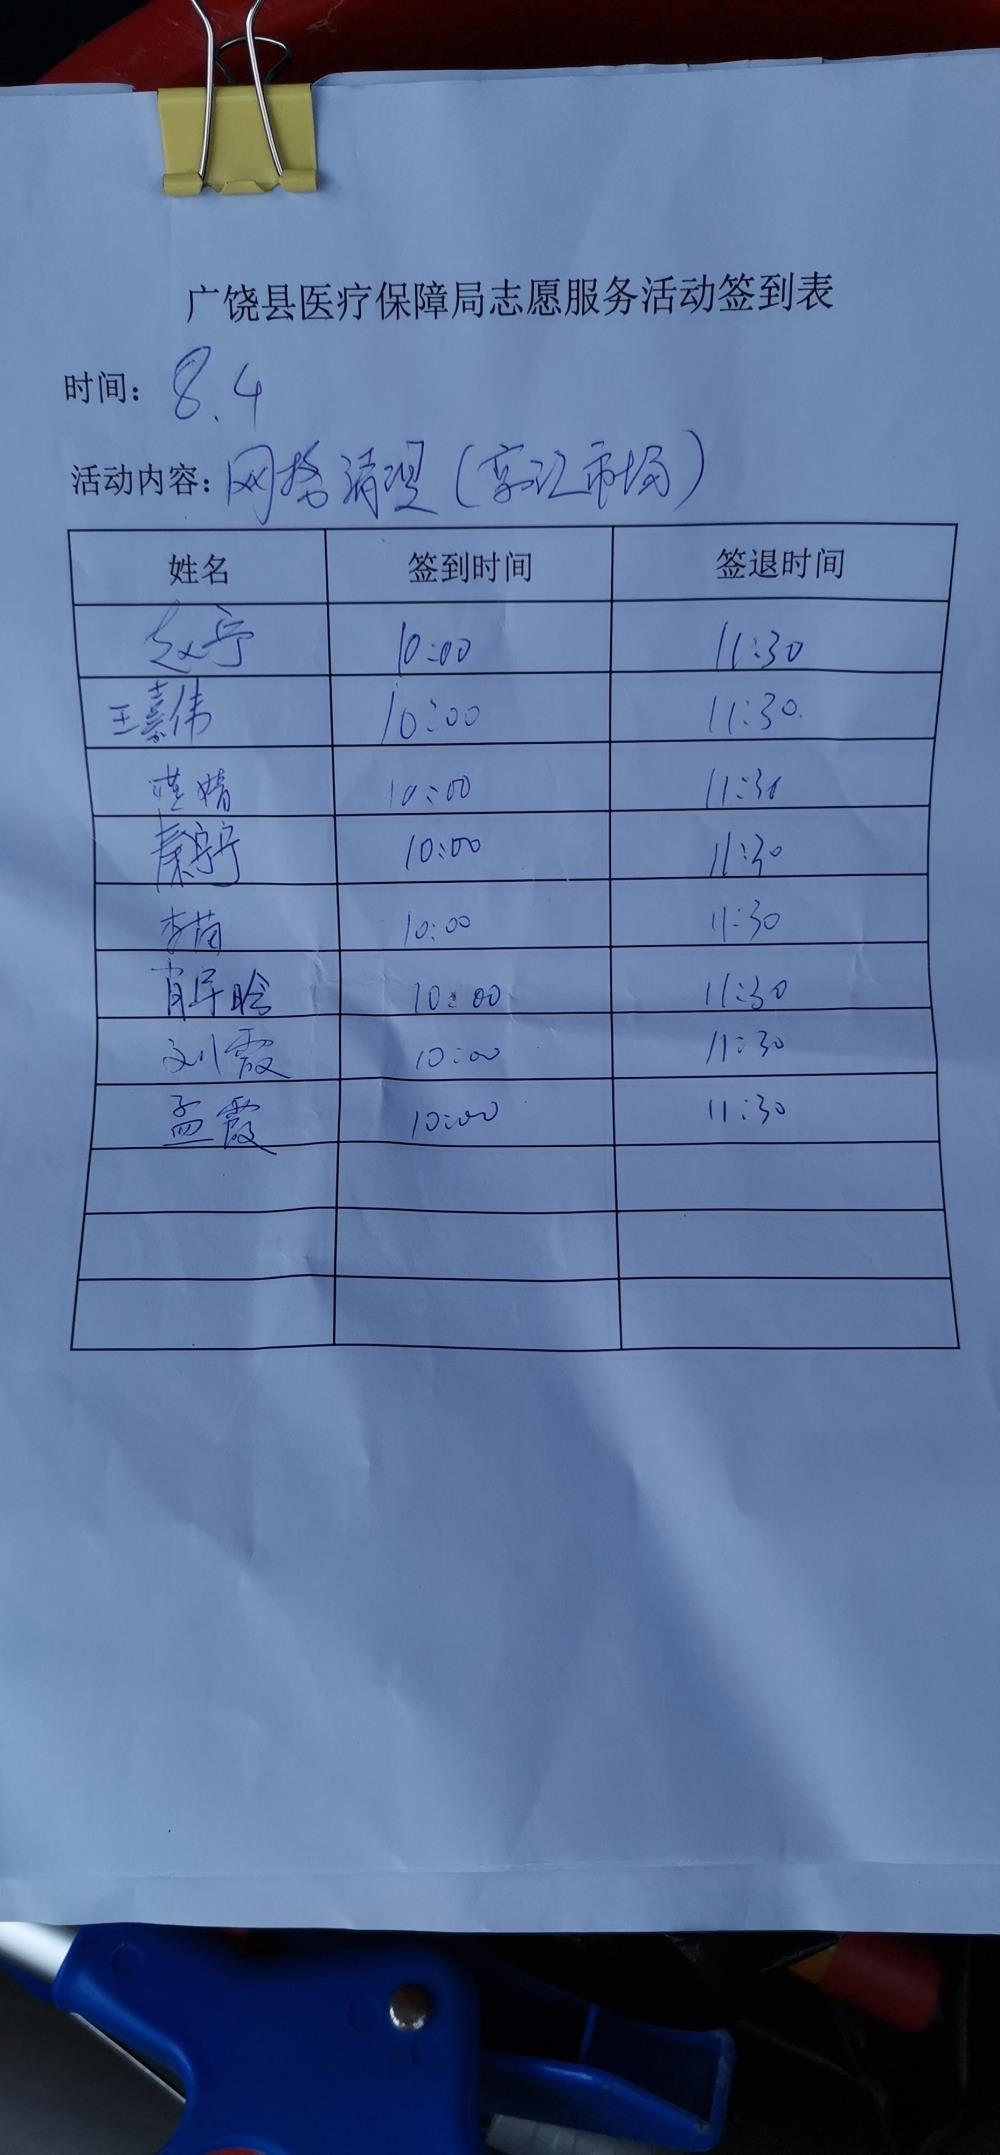 广饶县医疗保障局志愿服务活动签到表
时间：8.4
活动内容：网格清理（市场）
姓名 签到时间 签退时间
赵宁 10:00 11:30
王嘉伟 10:00 11:30
婧 10:00 11:30
秦宁宁 10:00 11:30
李苗 10:00 11:30
肖晗 10:00 11:30
刘霞 10:00 11:30
孟霞 10:00 11:30